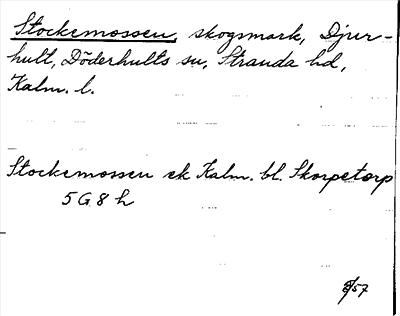 Stockemossen, skogsmark, Djur-
hult, Döderhults sn, Stranda hd,
Kalm. l.
Stockemossen ek Kalm. bl. Skorpetorp
5 G 8 h
/57